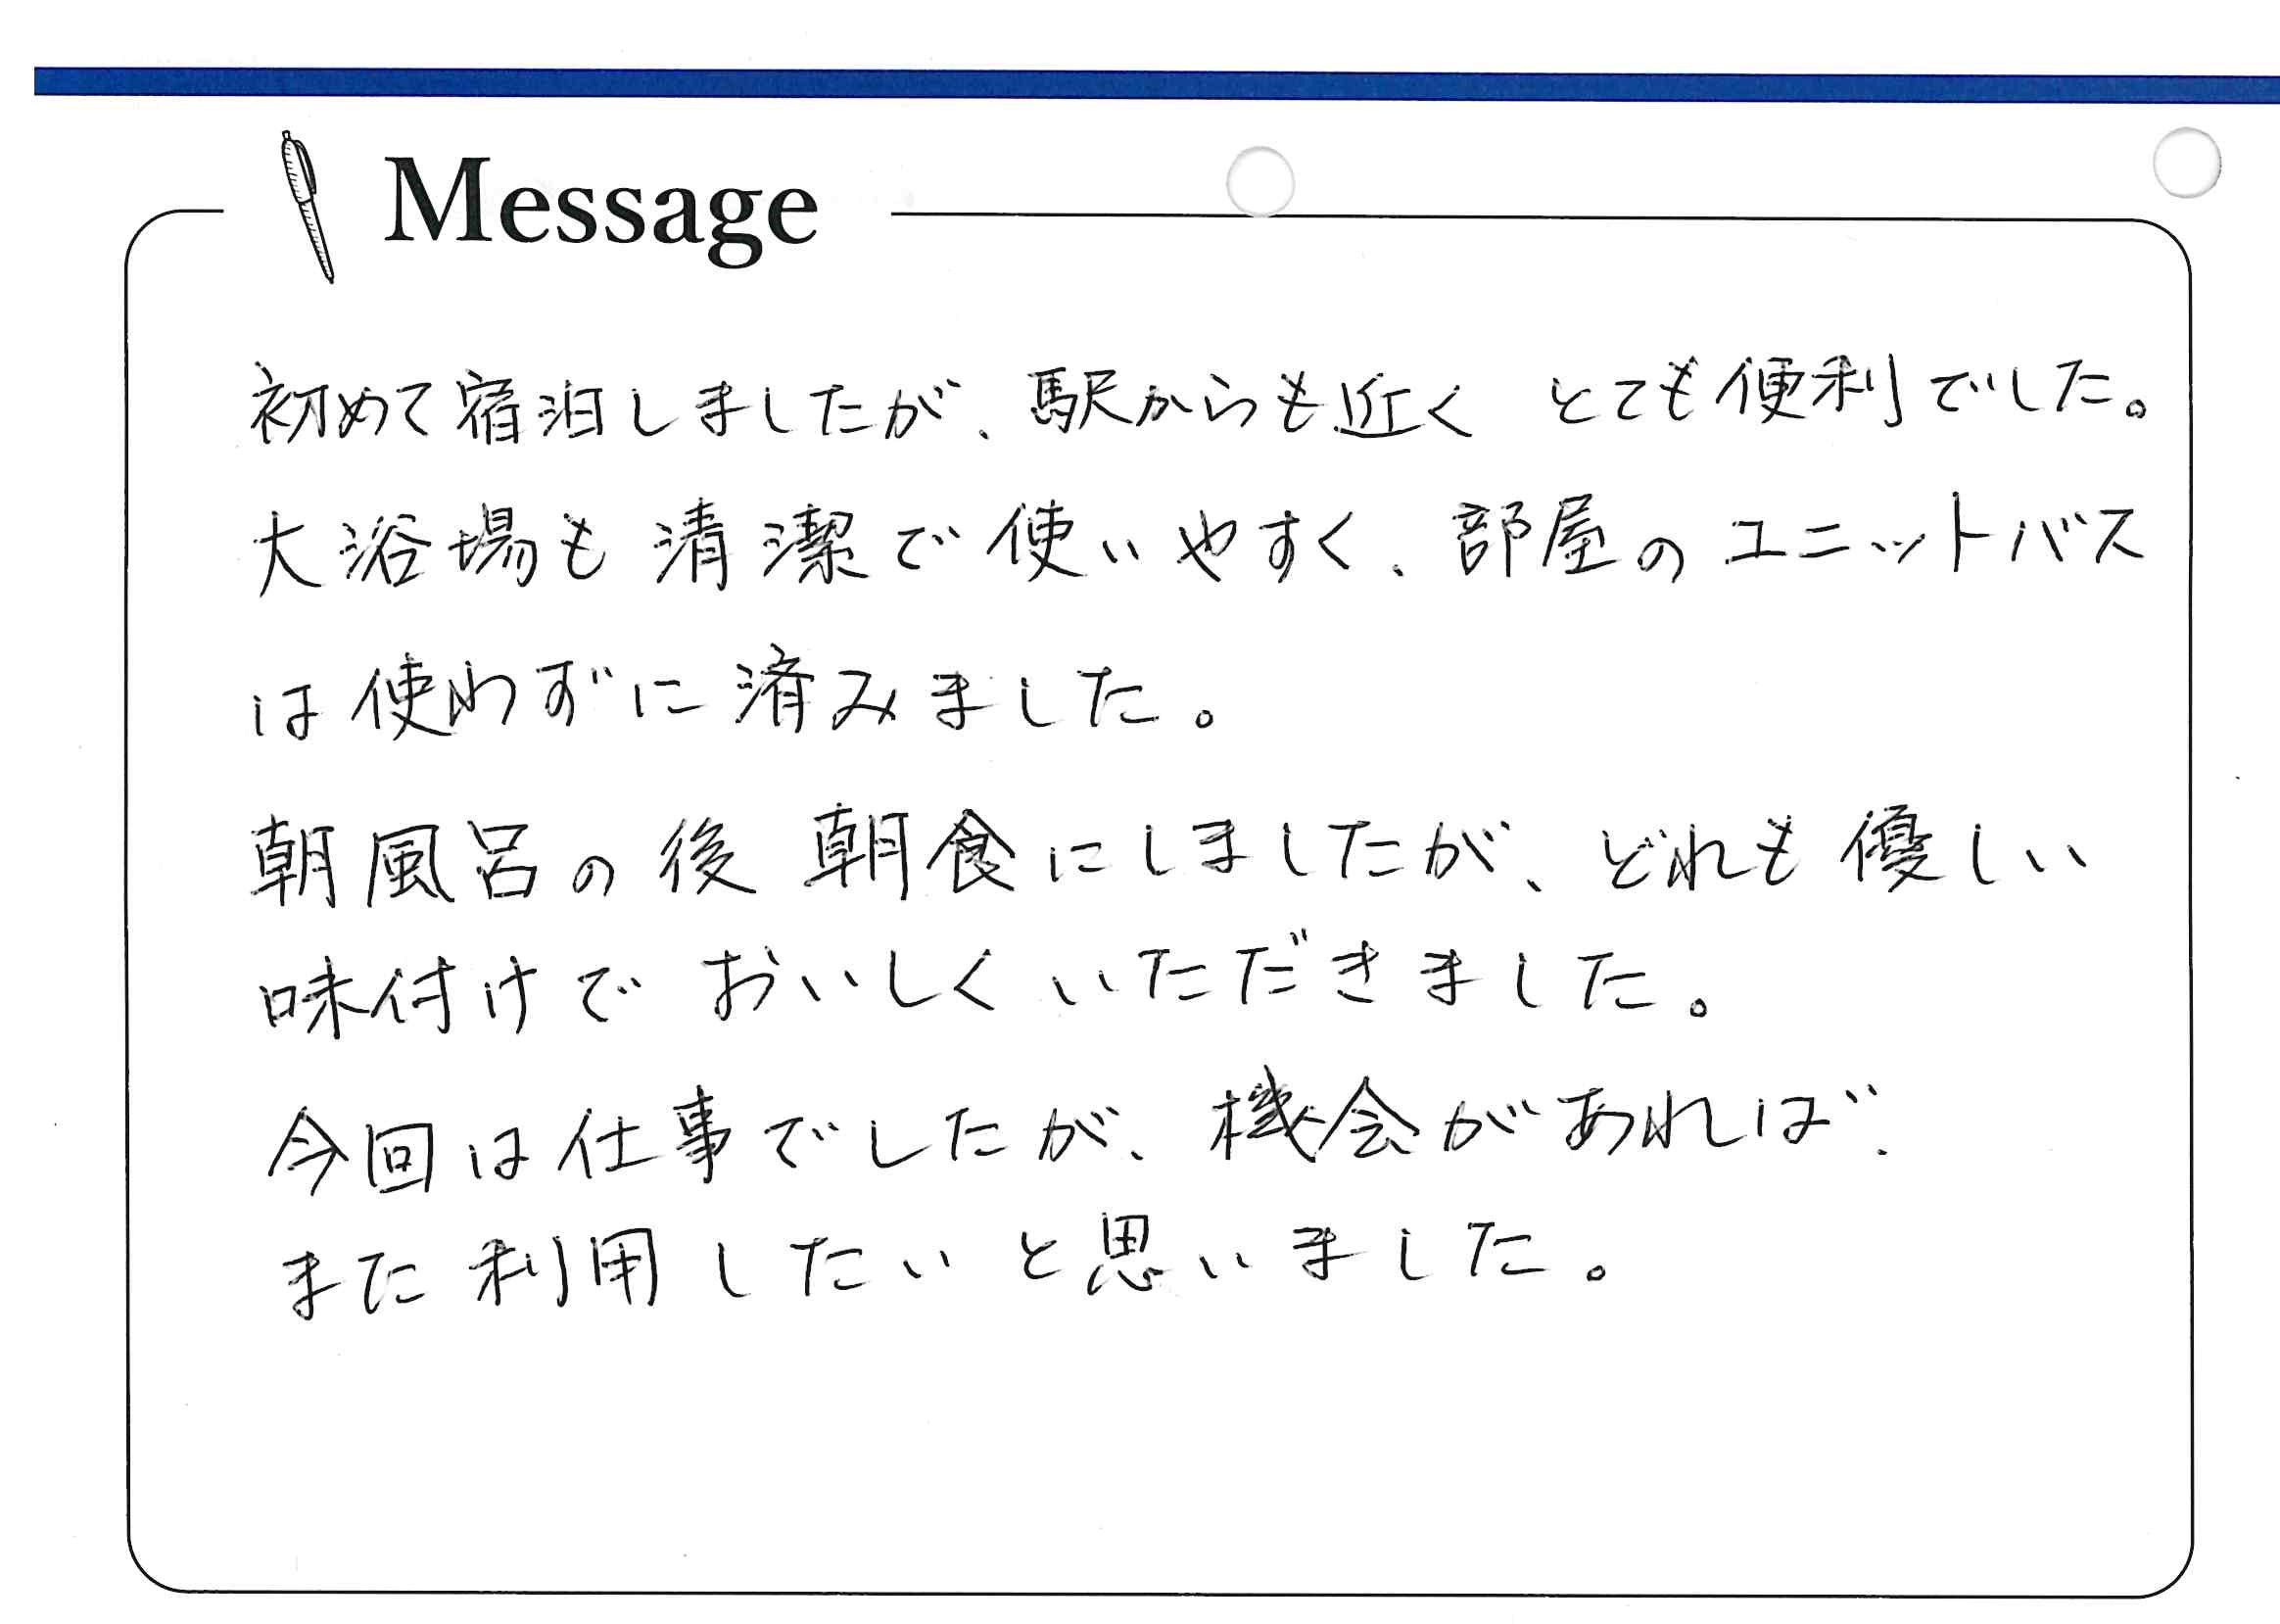 Message
初めて宿泊しましたが、駅からも近く とても便利でした。
大浴場も清潔で使いやすく、部屋のユニットバス
は使わずに済みました。
朝風呂の後 朝食にしましたが、どれも優しい
味付けで おいしくいただきました。
今回は仕事でしたが、機会があれば、
また利用したいと思いました。